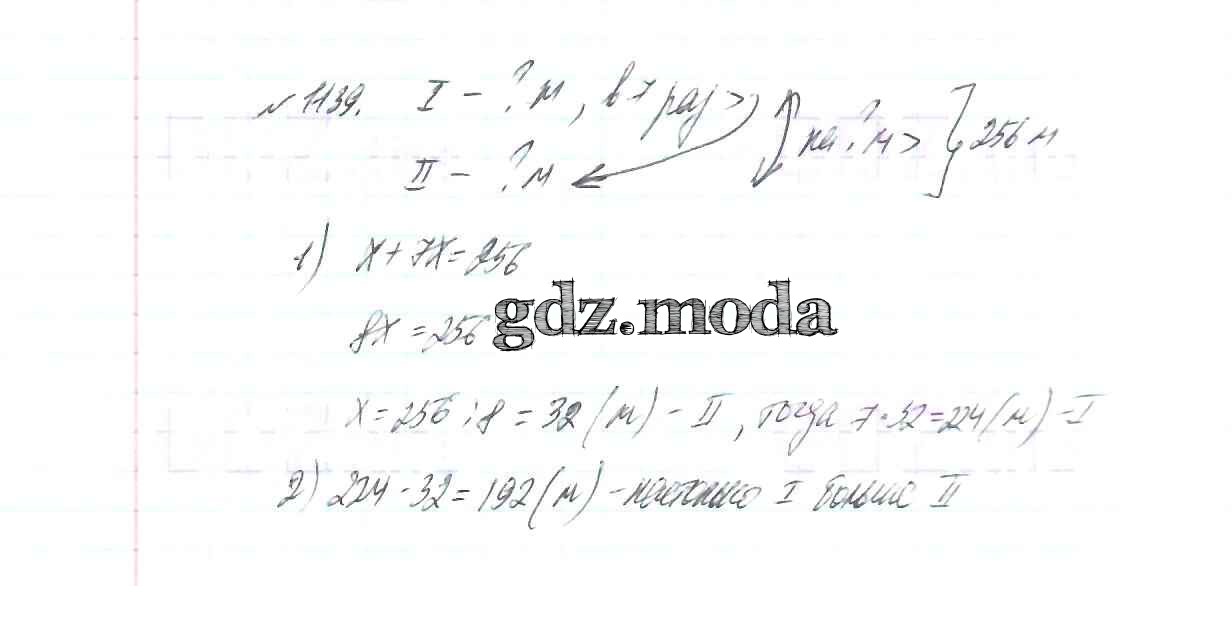 № 1139. I - ? м, в 7 раз > на ? м > 256 м
II - ? м
1) x + 7x = 256
8x = 256
gdz.moda
x = 256 : 8 = 32 (м) - II, тогда 7·32 = 224 (м) - I
2) 224 - 32 = 192 (м) - настолько I больше II